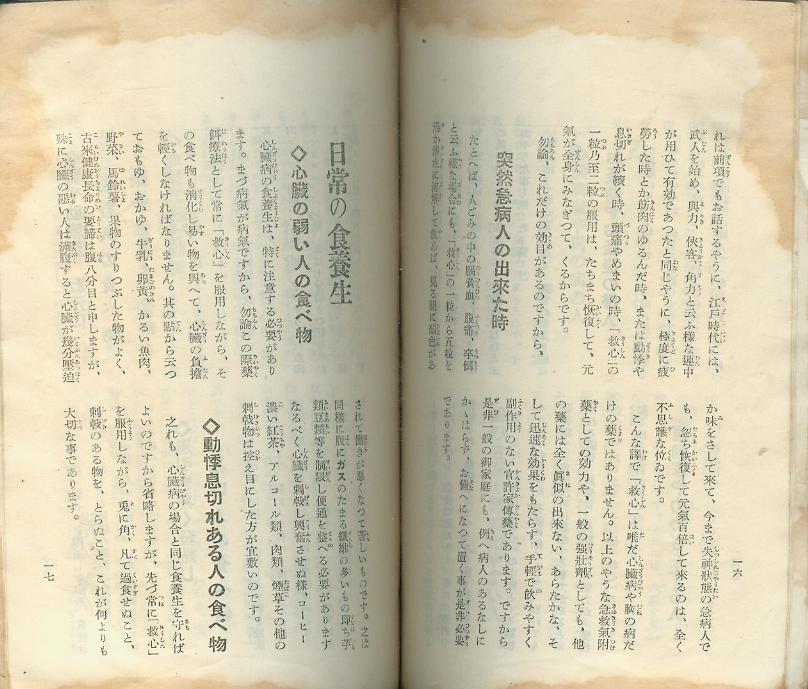 れは前項でもお話するやうに、江戸時代には、
武人を始め、與力、俠客、角力と云ふ樣な連中
が用ひて有効であつたと同じやうに、極度に疲
勞した時とか筋肉のゆるんだ時、または動悸や
息切れが續く時、頭痛やめまいの時、「救心」の
一粒乃至二粒の服用は、たちまち恢復して、元
氣が全身にみなぎつて、くるからです。
勿論、これだけの効目があるのですから、
突然急病人の出來た時
たとへば、人ごみの中の腦貧血、腹痛、卒倒
と云ふ樣な場合にも、「救心」の一粒から五粒を
見る間に顏色があ
か味をさして來て、今まで失神狀態の急病人で
も、忽ち恢復して元氣百倍して來るのは、全く
不思議な位ゐです。
こんな譯で「救心」は唯だ心臓病や胸の病だ
けの藥ではありません。以上のやうな急救氣附
藥としての効力や、一般の强壯劑としても、他
の藥には全く眞似の出來ない、あらたかな、そ
して迅速な効果をもたらす、手輕で飮みやすく
副作用のない官許家傳藥であります。ですから
是非一般の御家庭にも、例へ病人のあるなしに
かゝはらず、お備へになつて置く事が是非必要
であります。
一六
日常の食養生
◇心臓の弱い人の食べ物
心臓病の食養生は、特に注意する必要があり
ます。まづ病氣が病氣ですから、勿論この際藥
餌療法として常に「救心」を服用しながら、そ
の食べ物も消化し易い物を與へて、心臓の負擔
を輕くしなければなりません。其の點から云つ
ておもゆ、おかゆ、牛乳、卵黃、かるい魚肉、
野菜、馬鈴薯、果物のすりつぶした物がよく、
古來健康長命の要諦は腹八分目と申しますが、
殊に心臓の惡い人は滿腹すると心臓が幾分壓迫
されて働きが惡くなつて苦しいものです。之は
同樣に腹にガスのたまる纖維の多いもの卽ち芋
類豆類等を制限し便通を整へる必要があります
なるべく心臓を刺戟し興奮させぬ樣、コーヒー
濃い紅茶、アルコール類、肉類、煙草その他の
刺戟物は控え目にした方が宜敷いのです。
◇動悸息切れある人の食べ物
之れも、心臓病の場合と同じ食養生を守れば
よいのですから省略しますが、先づ常に「救心」
を服用しながら、兎に角、凡て過食せぬこと、
刺戟のある物を、とらぬこと、これが何よりも
大切な事であります。
一七